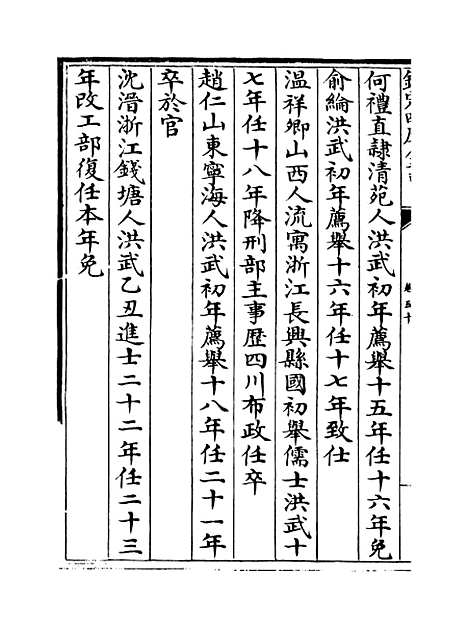 何禮直隸清苑人洪武初年薦舉十五年任十六年免
俞綸洪武初年薦舉十六年任十七年致仕
温祥卿山西人流寓浙江長興縣國初舉儒士洪武十
七年任十八年降刑部主事歴四川布政任卒
趙仁山東寧海人洪武初年薦舉十八年任二十一年
卒於官
沈溍浙江錢塘人洪武乙丑進士二十二年任二十三
年改工部復任本年免